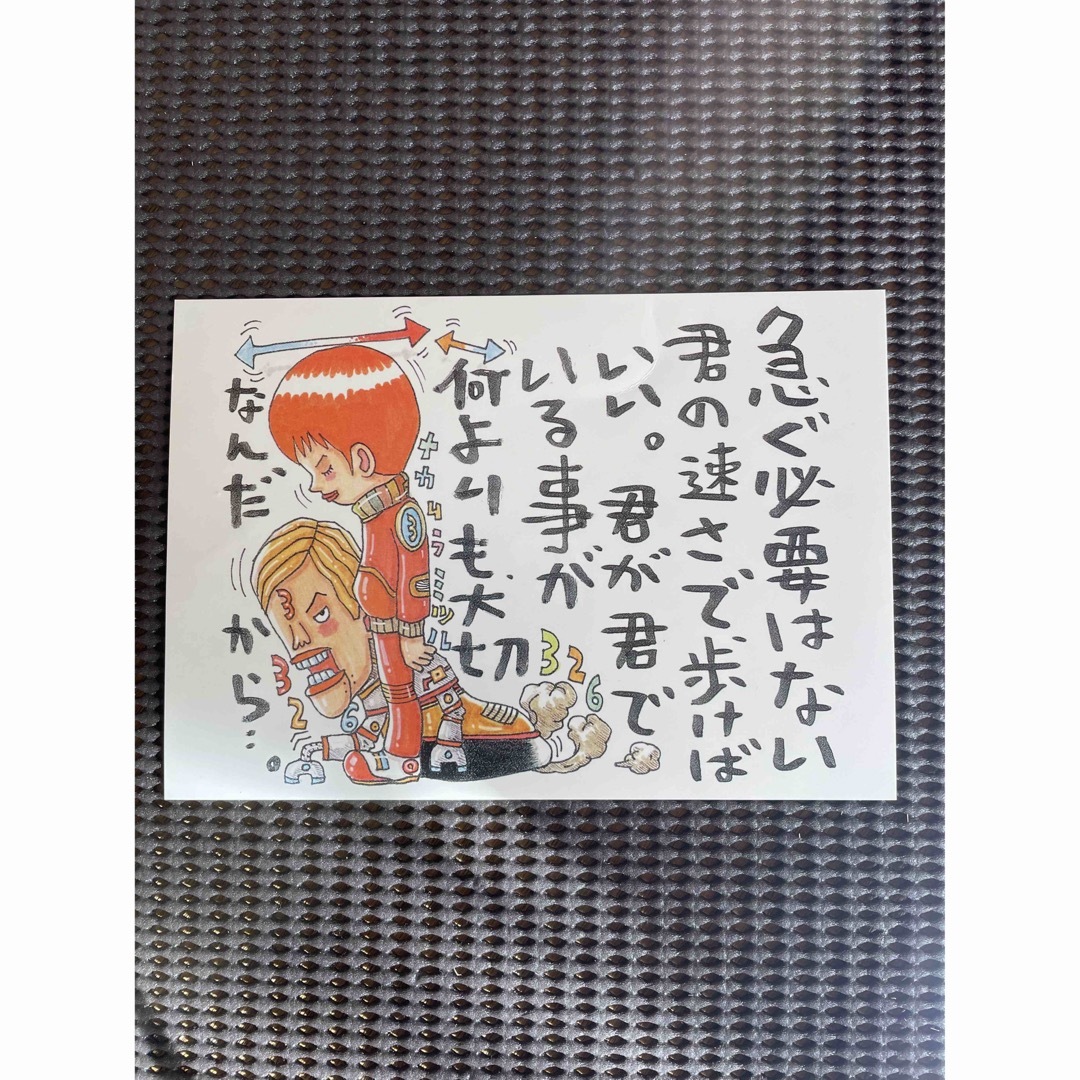 急ぐ必要はない
君の速さで歩けば
いい。君が君で
いる事が
何よりも大切
なんだ
から…。
ナカムラミツル
326
326
3
3